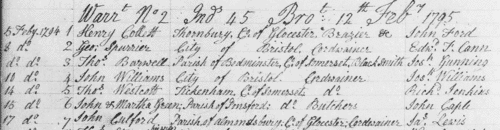 Warrt. No 2 Ind 45 Brot. 12th Feby 1795
5 Feby. 1794 1 Henry Collett Thornbury, C. of Glocester Brazier &c John Ford
8 do 2 Geo. Spurrier City of Bristol Cordwainer Edwd. T. Cann
do do 3 Thos. Barwell Parish of Bedminster, C. of Somerset, Black Smith Jos. Gunning
10 do 4 John Williams City of Bristol Cordwainer Jos. Williams
14 do 5 Thos. Westcott Tickenham, C. of Somerset, do Richd. Jenkins
15 do 6 John & Martha Green; Parish of Butchers John Caple
17 do 7 John Parish of Almondsbury; C. of Glocester; Cordwainer Jas. Lewis